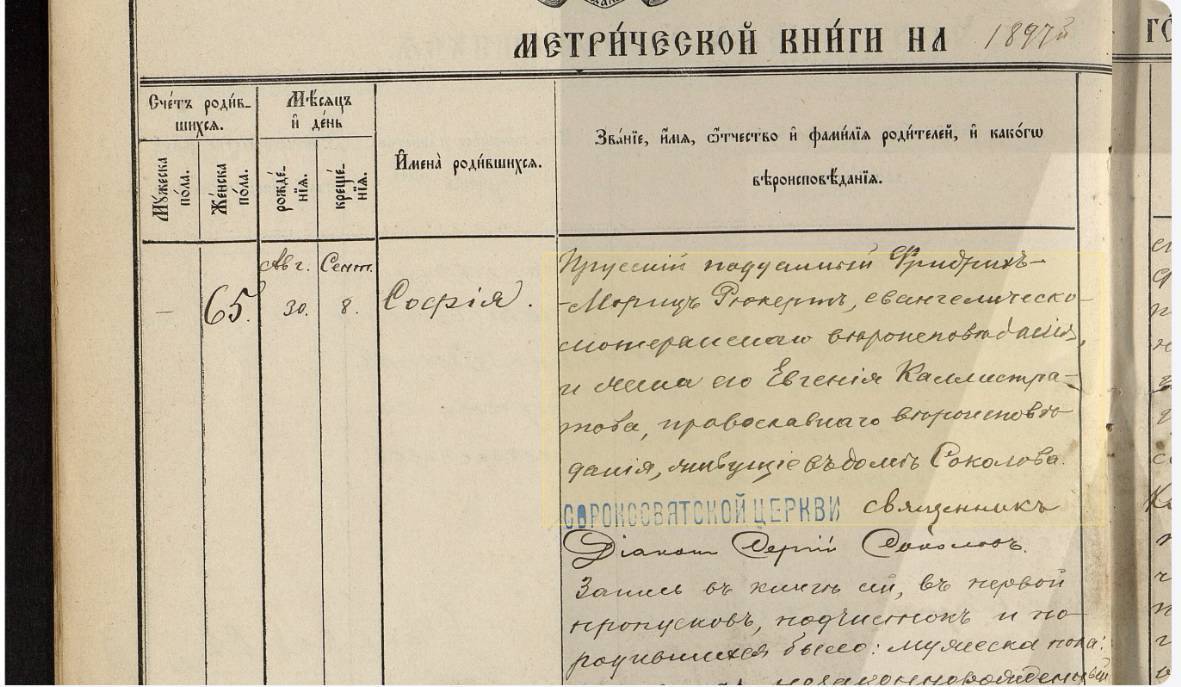 МЕТРИ́ЧЕСКОЙ КНИ́ГИ НА 1897й
ГО́
Сче́тъ роди́в-
шихся.
Мѣ́сяцъ
и҆ де́нь
И҆мена̀ роди́вшихся.
Зва́нїе, и҆́мя, ѻ҆́тчество и҆ фами́лїя роди́телей, и҆ како́гѡ
вѣроисповѣ́данїя.
Му́жеска
по́ла.
Же́нска
по́ла.
рожде́-
нїя.
креще́-
нїя.
Авг. Сент.
Прусскій подданный Фридрихъ-
— 65. 30. 8. Софія.
-Морицъ Рюкертъ, евангелическо-
лютеранскаго вѣроисповѣданія,
и жена его Евгенія Каллистра-
това, православнаго вѣроисповѣ-
данія, живущіе въ домѣ Соколова.
СОРОКОСВЯТСКОЙ ЦЕРКВИ священникъ
Діаконъ Сергій Соколовъ.
Запись въ книгѣ сей, въ первой
пропусковъ, подчистокъ и по
родившихся было: мужеска пола:
незаконнорожденный